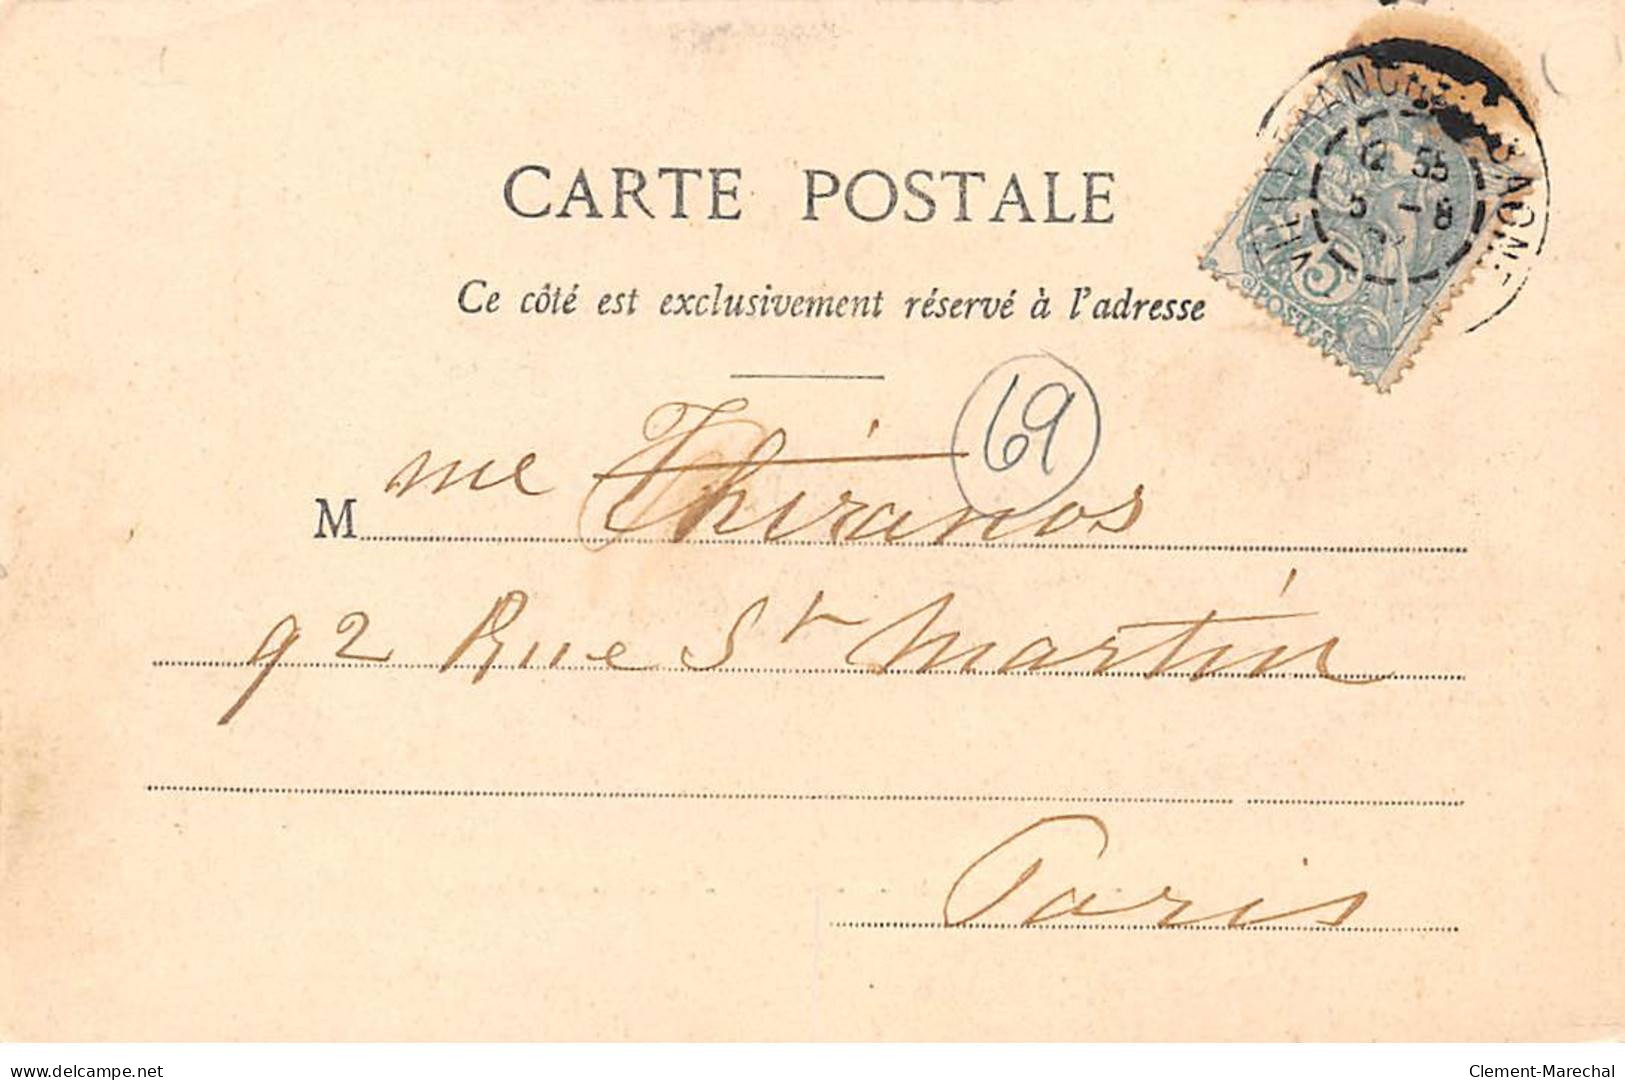 CARTE POSTALE
Ce côté est exclusivement réservé à l'adresse
12 55
5 -8
5
69
Mme Thiranos
92 Rue St Martin
Paris
www.delcampe.net
Clement-Marechal